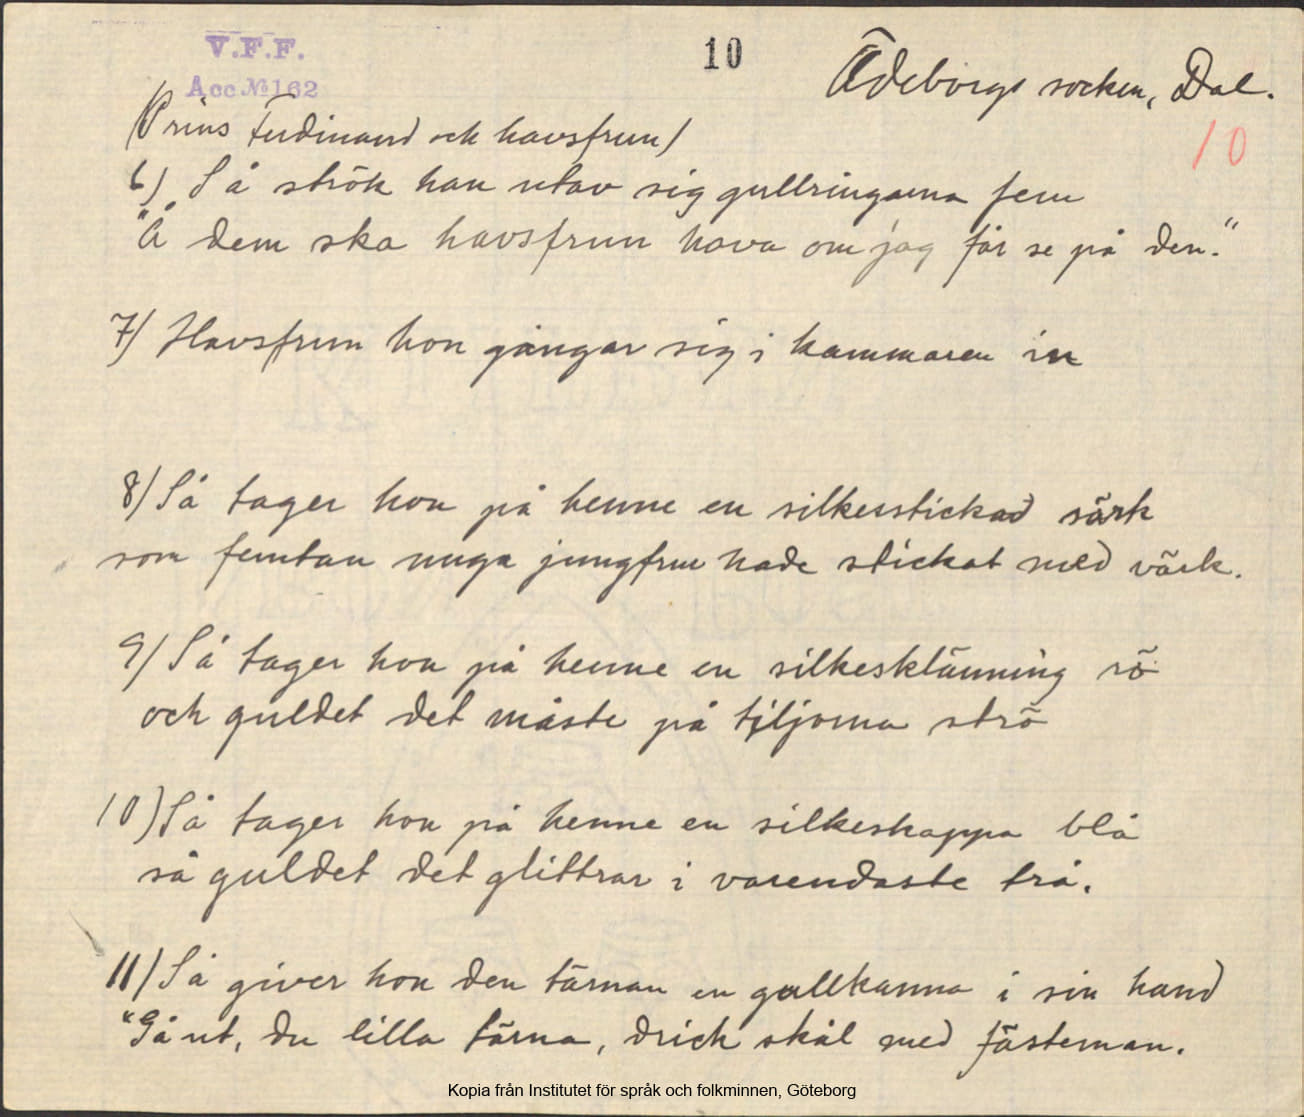 V.F.F.
Acc № 162
10
Ödeborgs socken, Dal.
10
(Prins Ferdinand och havsfrun)
6) Så strök han utav sig gullringarna fem
"Å dem ska havsfrun hava om jag får se på den."
7) Havsfrun hon gångar sig i kammaren in
8) Så tager hon på henne en silkesstickad särk
som femtan unga jungfrur hade stickat med värk.
9) Så tager hon på henne en silkesklänning rö
och guldet det måste på tiljorna strö
10) Så tager hon på henne en silkeskappa blå
så guldet det glittrar i varendaste trå.
11) Så giver hon den tärnan en gullkanna i sin hand
"Gå ut, du lilla tärna, drick skål med fästeman.
Kopia från Institutet för språk och folkminnen, Göteborg